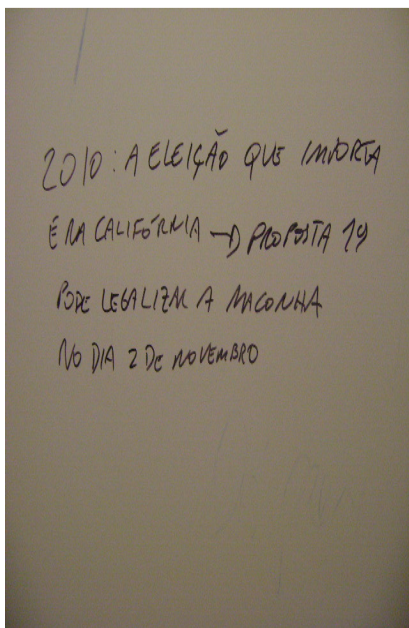 2010: A ELEIÇÃO QUE IMPORTA
É NA CALIFÓRNIA → PROPOSTA 19
PODE LEGALIZAR A MACONHA
NO DIA 2 DE NOVEMBRO